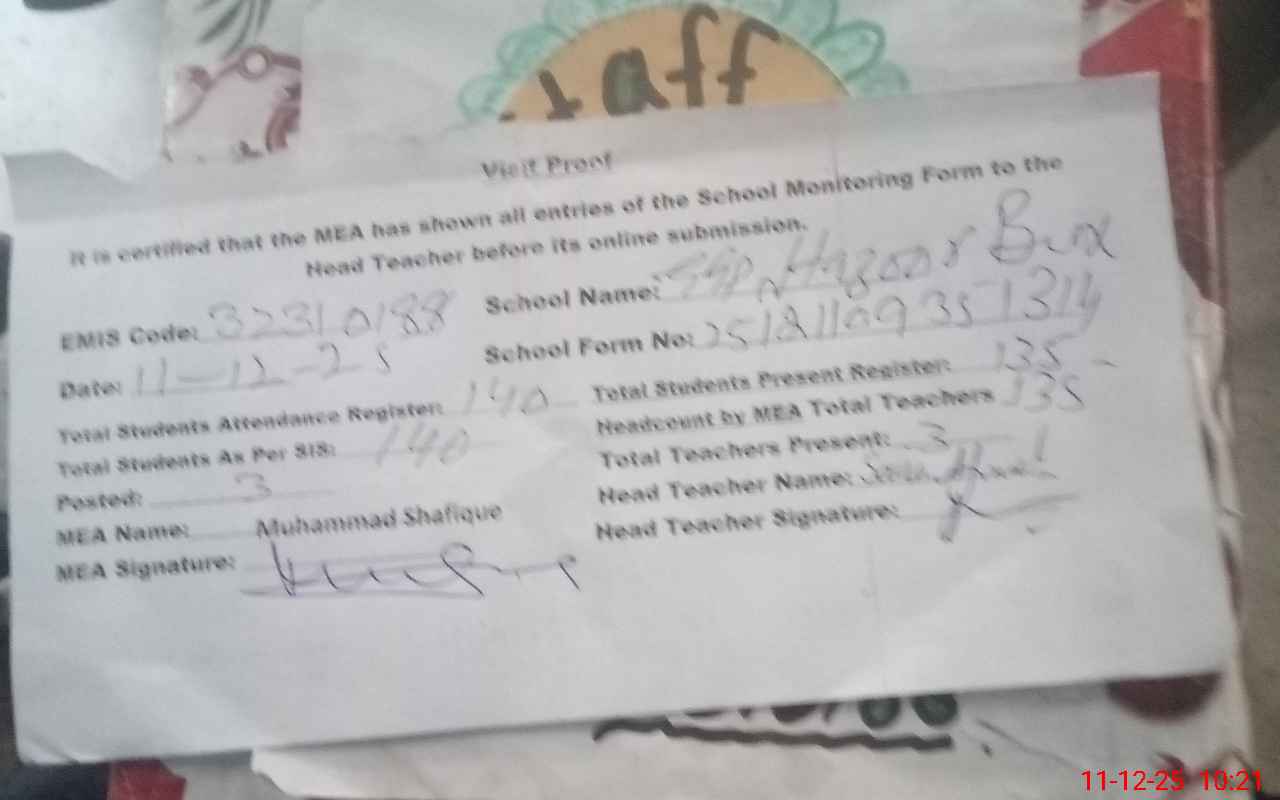 staff
Visit Proof
It is certified that the MEA has shown all entries of the School Monitoring Form to the
Head Teacher before its online submission.
EMIS Code: 32310188 School Name: Hazoor Bux
Date: 11-12-25 School Form No:
Total Students Attendance Register: 140 Total Students Present Register: 135
Total Students As Per SIS: 140 Headcount by MEA Total Teachers 135
Posted: 3 Total Teachers Present: 3
MEA Name: Muhammad Shafique Head Teacher Name:
MEA Signature: Head Teacher Signature:
11-12-25 10:21